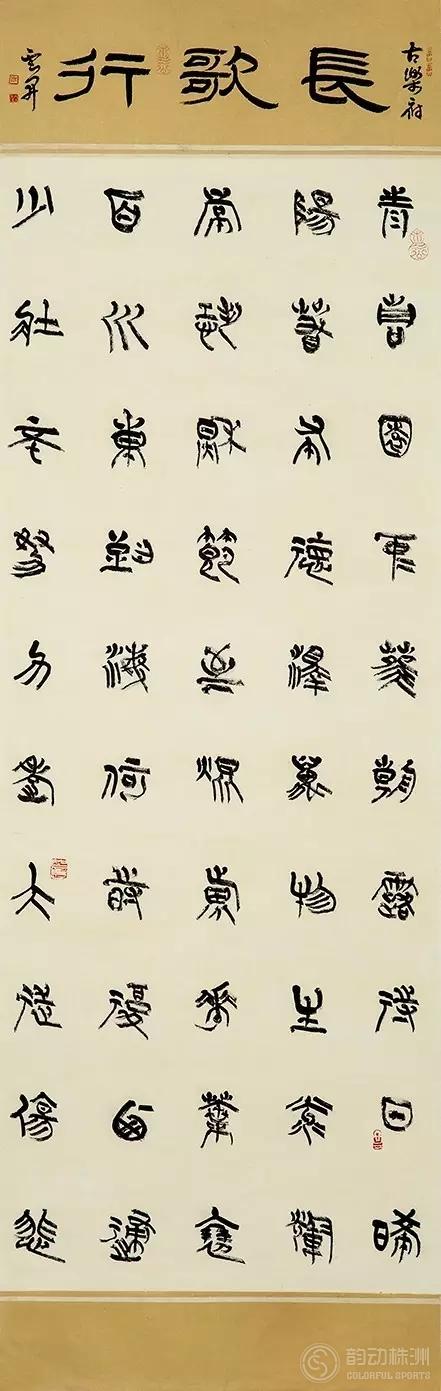 古樂府
長歌行
青青園中葵朝露待日晞
陽春布德澤萬物生光輝
常恐秋節至焜黃華葉衰
百川東到海何時復西歸
少壯不努力老大徒傷悲
韵动株洲
COLORFUL SPORTS